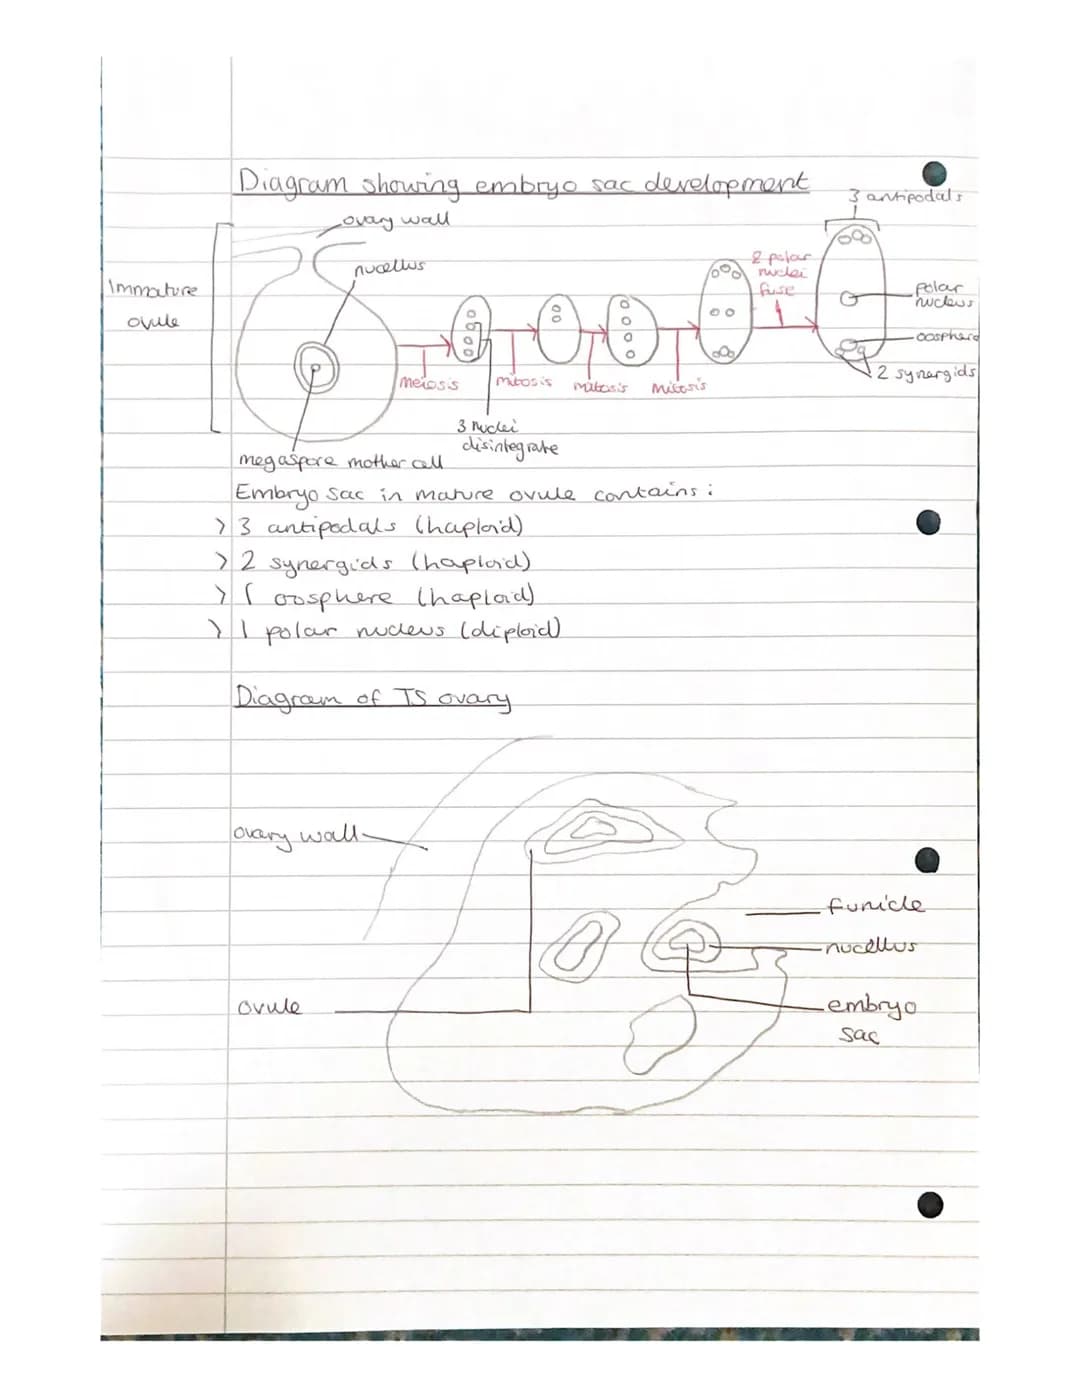 Diagram showing embryo sac development
3 antipodals
ovary wall
nucellus
2 polar
nuclei
fuse
Immature
ovule
Polar
nucleus
oosphere
2 synergids
meiosis
mitosis
mitosis
mitosis
3 nuclei
disintegrate
megaspore mother cell
Embryo sac in mature ovule contains:
> 3 antipodals (haploid)
> 2 synergids (haploid)
> 1 oosphere (haploid)
> 1 polar nucleus (diploid)
Diagram of TS ovary
ovary wall
funicle
nucellus
ovule
embryo
sac